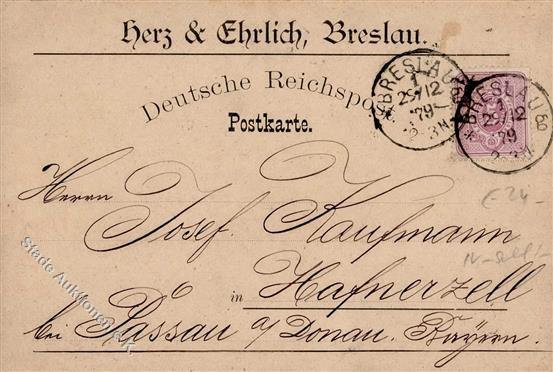 Herz & Ehrlich, Breslau.
Deutsche Reichspost
Postkarte.
BRESLAU
1
29/12
79
2-3N
BRESLAU
1
29/12
79
2-3N
Herrn
Josef Kaufmann
in Hafnerzell
bei Passau a/Donau. Bayern.
Stade Auktionen